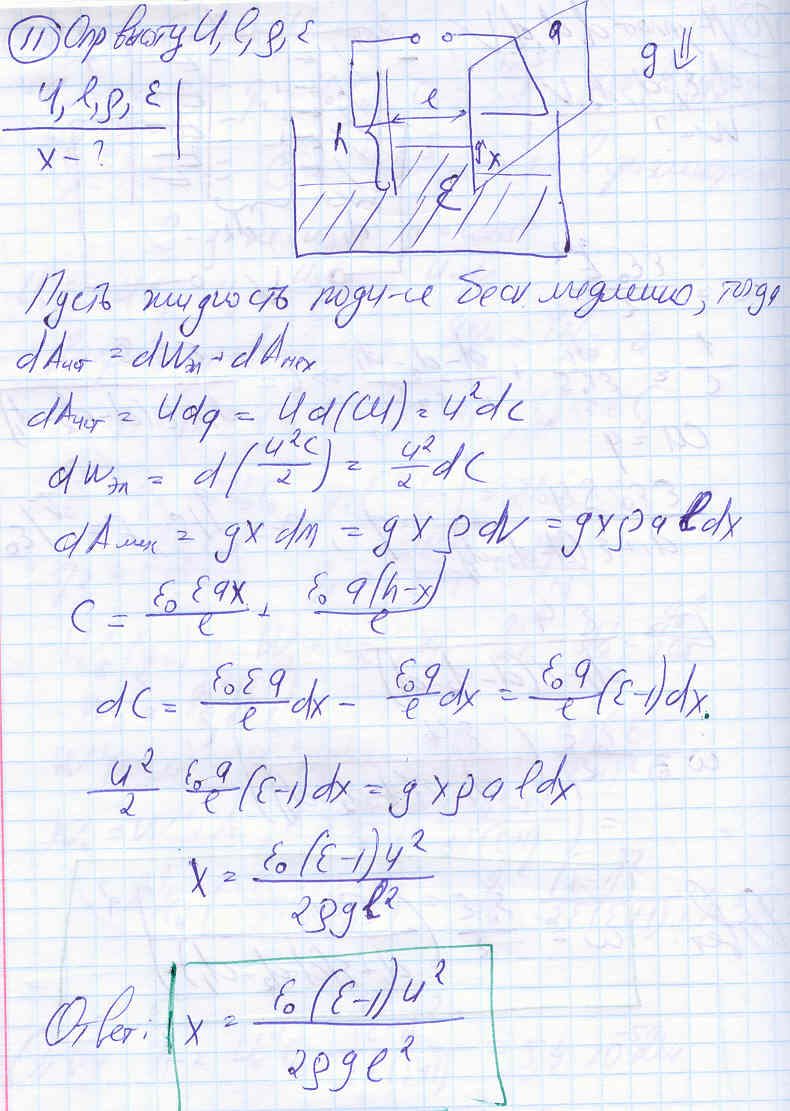 11 Опр высту U, l, ρ, ε
U, l, ρ, ε
x - ?
a
g
l
h
x
ε
Пусть жидкость подн-ся беск медленно, тогда
dAист = dWэл + dAмех
dAист = Udq = Ud(CU) = U²dC
dWэл = d(U²C/2) = U²/2 dC
dAмех = gx dm = gxρdV = gxρaldx
C = ε₀εax/l + ε₀a(h-x)/l
dC = ε₀εa/l dx - ε₀a/l dx = ε₀a/l (ε-1)dx.
U²/2 ε₀a/l (ε-1)dx = gxρaldx
x = ε₀(ε-1)U²/2ρgl²
Ответ: x = ε₀(ε-1)U²/2ρgl²